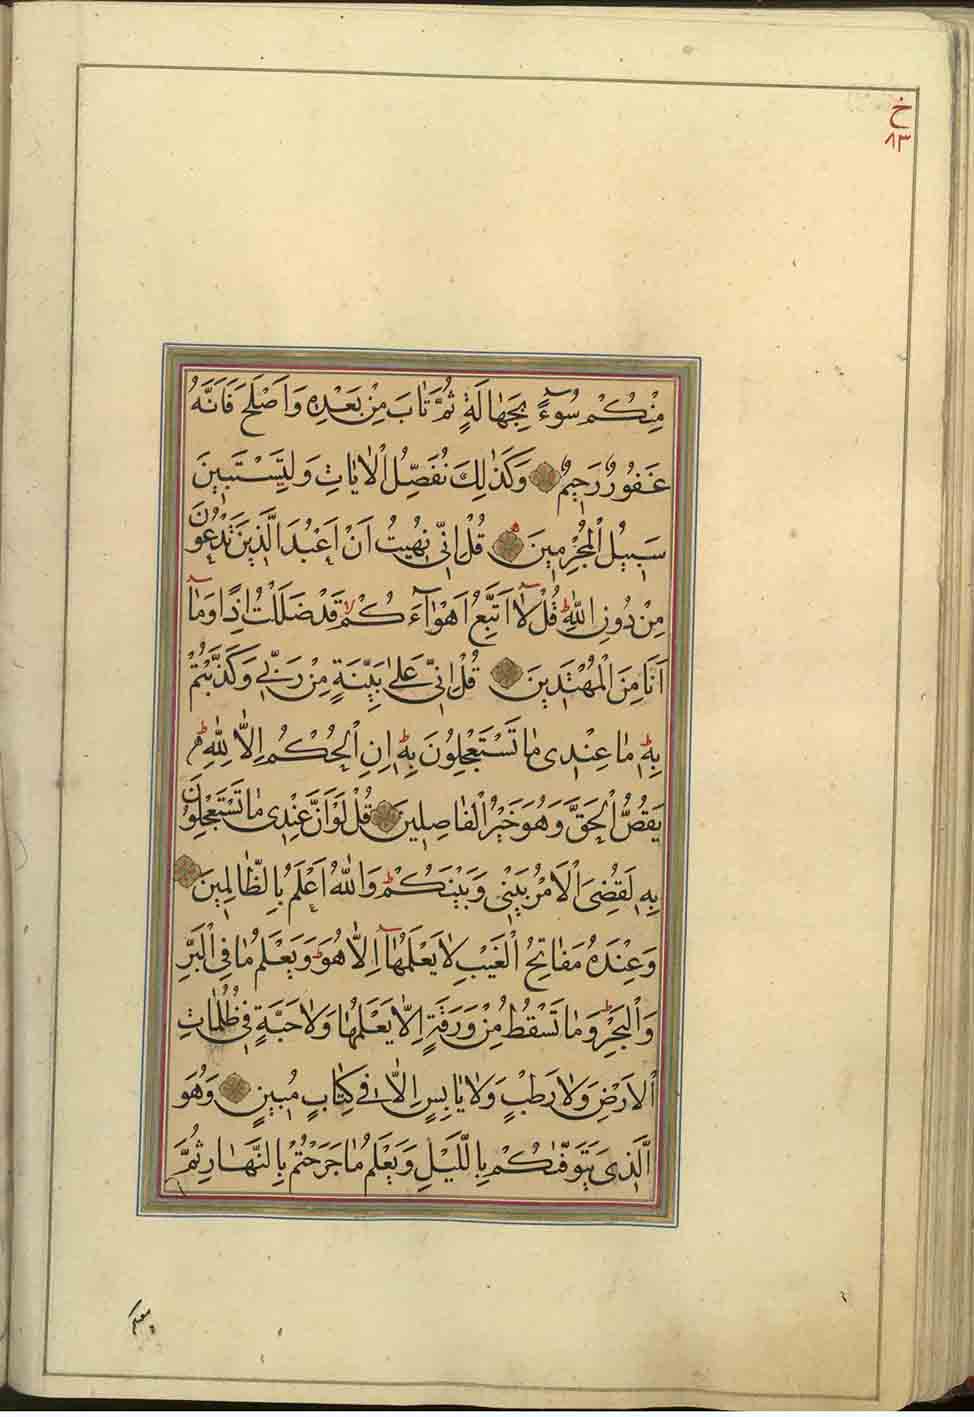 خ
٨٣
مِنْكُمْ سُوۤءً بِجَهٰالَةٍ ثُمَّ تٰابَ مِنْ بَعْدِهِ وَاَصْلَحَ فَاَنَّهُ
غَفُورٌ رَحِيمٌ وَكَذٰلِكَ نُفَصِّلُ الْاٰيٰاتِ وَلِتَسْتَبِينَ
سَبِيلُ الْمُجْرِمِينَ قُلْ اِنِّي نُهِيتُ اَنْ اَعْبُدَ الَّذِينَ تَدْعُونَ
مِنْ دُونِ اللّٰهِ ط قُلْ لٰا اَتَّبِعُ اَهْوٰآءَكُمْ لا قَدْ ضَلَلْتُ اِذًا وَمٰآ
اَنَا مِنَ الْمُهْتَدِينَ قُلْ اِنِّي عَلىٰ بَيِّنَةٍ مِنْ رَبِّي وَكَذَّبْتُمْ
بِهِ ط مٰا عِنْدِي مٰا تَسْتَعْجِلُونَ بِهِ ط اِنِ الْحُكْمُ اِلّٰا لِلّٰهِ ط
يَقُصُّ الْحَقَّ وَهُوَ خَيْرُ الْفٰاصِلِينَ قُلْ لَوْ اَنَّ عِنْدِي مٰا تَسْتَعْجِلُونَ
بِهِ لَقُضِيَ الْاَمْرُ بَيْنِي وَبَيْنَكُمْ ط وَاللّٰهُ اَعْلَمُ بِالظّٰالِمِينَ
وَعِنْدَهُ مَفٰاتِحُ الْغَيْبِ لٰا يَعْلَمُهٰآ اِلّٰا هُوَ ط وَيَعْلَمُ مٰا فِي الْبَرِّ
وَالْبَحْرِ ط وَمٰا تَسْقُطُ مِنْ وَرَقَةٍ اِلّٰا يَعْلَمُهٰا وَلٰا حَبَّةٍ فِي ظُلُمٰاتِ
الْاَرْضِ وَلٰا رَطْبٍ وَلٰا يٰابِسٍ اِلّٰا فِي كِتٰابٍ مُبِينٍ وَهُوَ
الَّذِي يَتَوَفّٰىكُمْ بِاللَّيْلِ وَيَعْلَمُ مٰا جَرَحْتُمْ بِالنَّهٰارِ ثُمَّ